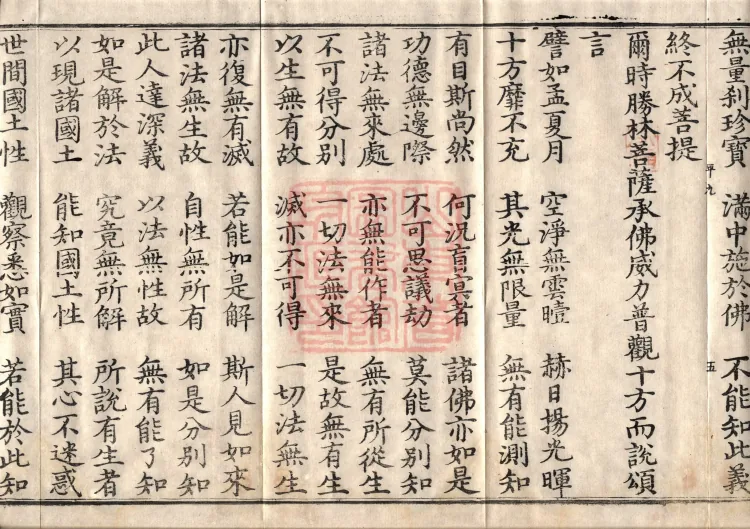 無量刹珍寶　滿中施於佛　不能知此義
平九　五
終不成菩提
爾時勝林菩薩承佛威力普觀十方而說頌
言
譬如孟夏月　空淨無雲曀　赫日揚光暉
十方靡不充　其光無限量　無有能測知
有目斯尚然　何況盲冥者　諸佛亦如是
功德無邊際　不可思議劫　莫能分別知
諸法無來處　亦無能作者　無有所從生
不可得分別　一切法無來　是故無有生
以生無有故　滅亦不可得　一切法無生
亦復無有滅　若能如是解　斯人見如來
諸法無生故　自性無所有　如是分別知
此人達深義　以法無性故　無有能了知
如是解於法　究竟無所解　所說有生者
以現諸國土　能知國土性　其心不迷惑
世間國土性　觀察悉如實　若能於此知